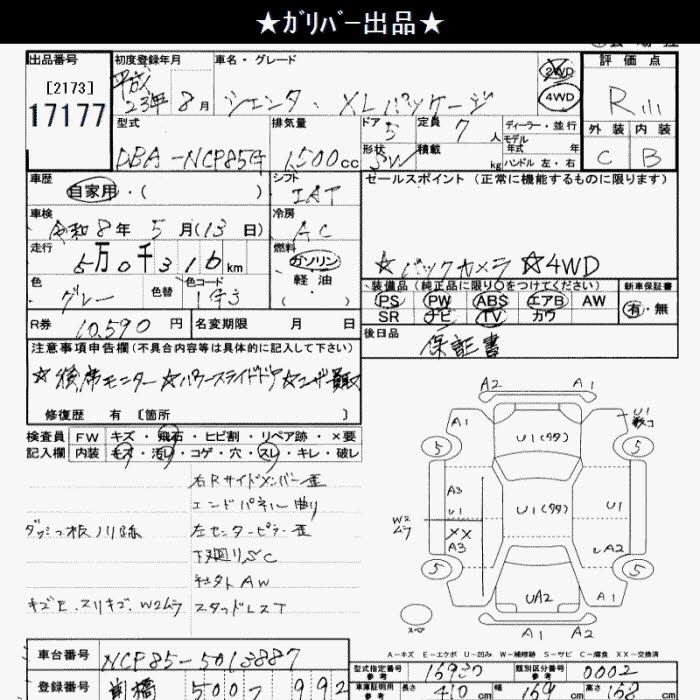 ★ｶﾞﾘﾊﾞｰ出品★
出品番号
[2173]
17177
初度登録年月
平成
23年 8月
車名・グレード
シエンタ・XLパッケージ
2WD
4WD
評価点
R
外装 内装
C B
型式
DBA-NCP85G
排気量
1500cc
ドア 5
定員 7人
形状 SW
積載 kg
ディーラー・並行
モデル年式 年式
ハンドル 左・右
車歴
自家用・( )
シフト
IAT
セールスポイント (正常に機能するものに限ります)
☆バックカメラ ☆4WD
車検
令和 8年 5月(13日)
冷房
AC
走行
5万0千316km
燃料
ガソリン
軽油
( )
色
グレー
色替
色コード
1G3
装備品(純正品に限り○をつけてください)
PS PW ABS エアB AW
SR ナビ TV カワ
新車保証書
有・無
R券 10,590円
名変期限 月 日
後日品
保証書
注意事項申告欄(不具合内容等は具体的に記入して下さい)
☆後席モニター ☆パワースライドドア ☆ユーザー買取
修復歴 有 [箇所 ]
検査員
記入欄
FW キズ・飛石・ヒビ割・リペア跡・×要
内装 モケ・汚レ・コゲ・穴・スレ・キレ・破レ
右Rサイドメンバー歪
エンドパネル曲り
ダッシュ板ノリ跡
左センターピラー歪
下廻りSC
社外AW
キズE、スリキズ、W2ムラ
スタッドレスT
A2 A1
A1
U1
U1(タタ)
5 5
A3
U1
U1(タタ)
U1
W2
ムラ
XX
A3
A2
5 5
UA2
A1
A1 A2
スペア
A-キズ E-エクボ U-凹み W-補修跡 S-サビ C-腐食 XX-交換済
車台番号
NCP85-5013887
型式指定番号
参考
類別区分番号
参考
0002
登録番号
前橋 500 992
車庫証明用
参考
長さ 410cm
幅 169cm
高さ 168cm